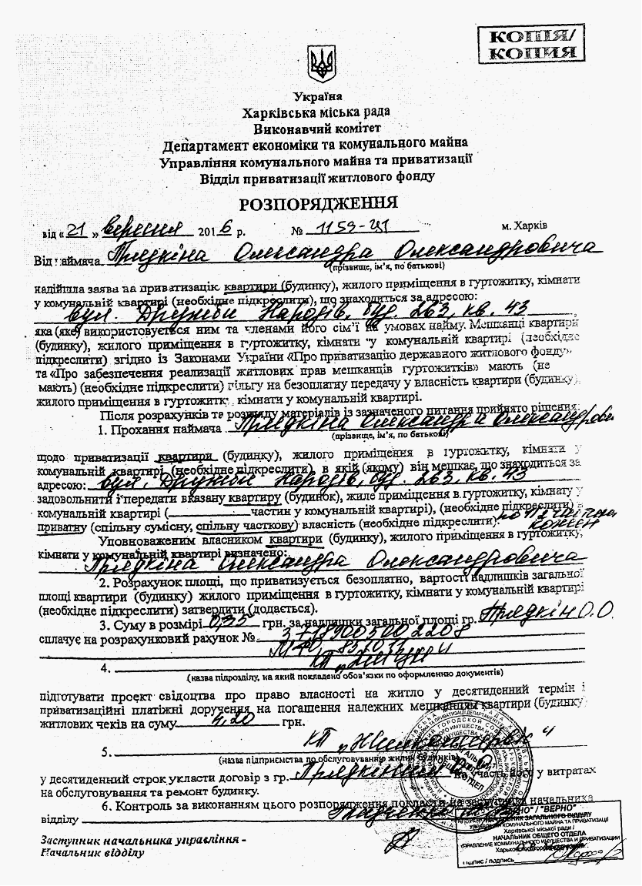 КОПІЯ/
КОПИЯ
Україна
Харківська міська рада
Виконавчий комітет
Департамент економіки та комунального майна
Управління комунального майна та приватизації
Відділ приватизації житлового фонду
РОЗПОРЯДЖЕННЯ
від « 21 » вересня 2016 р. № 1159-Ц1 м. Харків
Від наймача Прядкіна Олександра Олександровича
(прізвище, ім'я, по батькові)
надійшла заява на приватизацію квартири (будинку), жилого приміщення в гуртожитку, кімнати
у комунальній квартирі (необхідне підкреслити), що знаходиться за адресою:
вул. Дружби Народів, буд. 263, кв. 43
яка (яке) використовується ним та членами його сім'ї на умовах найму. Мешканці квартири
(будинку), жилого приміщення в гуртожитку, кімнати у комунальній квартирі (необхідне
підкреслити) згідно із Законами України «Про приватизацію державного житлового фонду»
та «Про забезпечення реалізації житлових прав мешканців гуртожитків» мають (не
мають) (необхідне підкреслити) пільгу на безоплатну передачу у власність квартири (будинку),
жилого приміщення в гуртожитку, кімнати у комунальній квартирі.
Після розрахунків та розгляду матеріалів із зазначеного питання прийнято рішення:
1. Прохання наймача Прядкіна Олександра Олександрови
(прізвище, ім'я, по батькові)
щодо приватизації квартири (будинку), жилого приміщення в гуртожитку, кімнати у
комунальній квартирі (необхідне підкреслити), в якій (якому) він мешкає, що знаходиться за
адресою: вул. Дружби Народів, буд. 263, кв. 43
задовольнити і передати вказану квартиру (будинок), жиле приміщення в гуртожитку, кімнату у
комунальній квартирі ( частин у комунальній квартирі), (необхідне підкреслити) в
приватну (спільну сумісну, спільну часткову) власність (необхідне підкреслити).
Уповноваженим власником квартири (будинку), жилого приміщення в гуртожитку,
кімнати у комунальній квартирі визначено:
Прядкіна Олександра Олександровича
2. Розрахунок площі, що приватизується безоплатно, вартості надлишків загальної
площі квартири (будинку) жилого приміщення в гуртожитку, кімнати у комунальній квартирі
(необхідне підкреслити) затвердити (додається).
3. Суму в розмірі 0,25 грн. за надлишки загальної площі гр. Прядкін О.О.
сплачує на розрахунковий рахунок №
4.
(назва підрозділу, на який покладено обов'язки по оформленню документів)
підготувати проект свідоцтва про право власності на житло у десятиденний термін і
приватизаційні платіжні доручення на погашення належних мешканцям квартири (будинку)
житлових чеків на суму 4,20 грн.
5. КП „Жилкомсервіс"
(назва підприємства по обслуговуванню жилих будинків)
у десятиденний строк укласти договір з гр. Прядкіним на участь його у витратах
на обслуговування та ремонт будинку.
6. Контроль за виконанням цього розпорядження покласти на заступника начальника
відділу
Заступник начальника управління -
Начальник відділу
"ВІРНО" / "ВЕРНО"
НАЧАЛЬНИК ЗАГАЛЬНОГО ВІДДІЛУ
Харківської міської ради /
НАЧАЛЬНИК ОБЩЕГО ОТДЕЛА
УПРАВЛЕНИЕ КОММУНАЛЬНОГО ИМУЩЕСТВА И ПРИВАТИЗАЦИИ
підпис / подпись